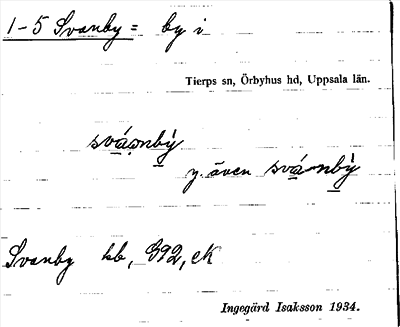 1-5 Svanby = by i
Tierps sn, Örbyhus hd, Uppsala län.
svánbỳ
y. även svánbỳ
Svanby hb, 392, eK
Ingegärd Isaksson 1934.